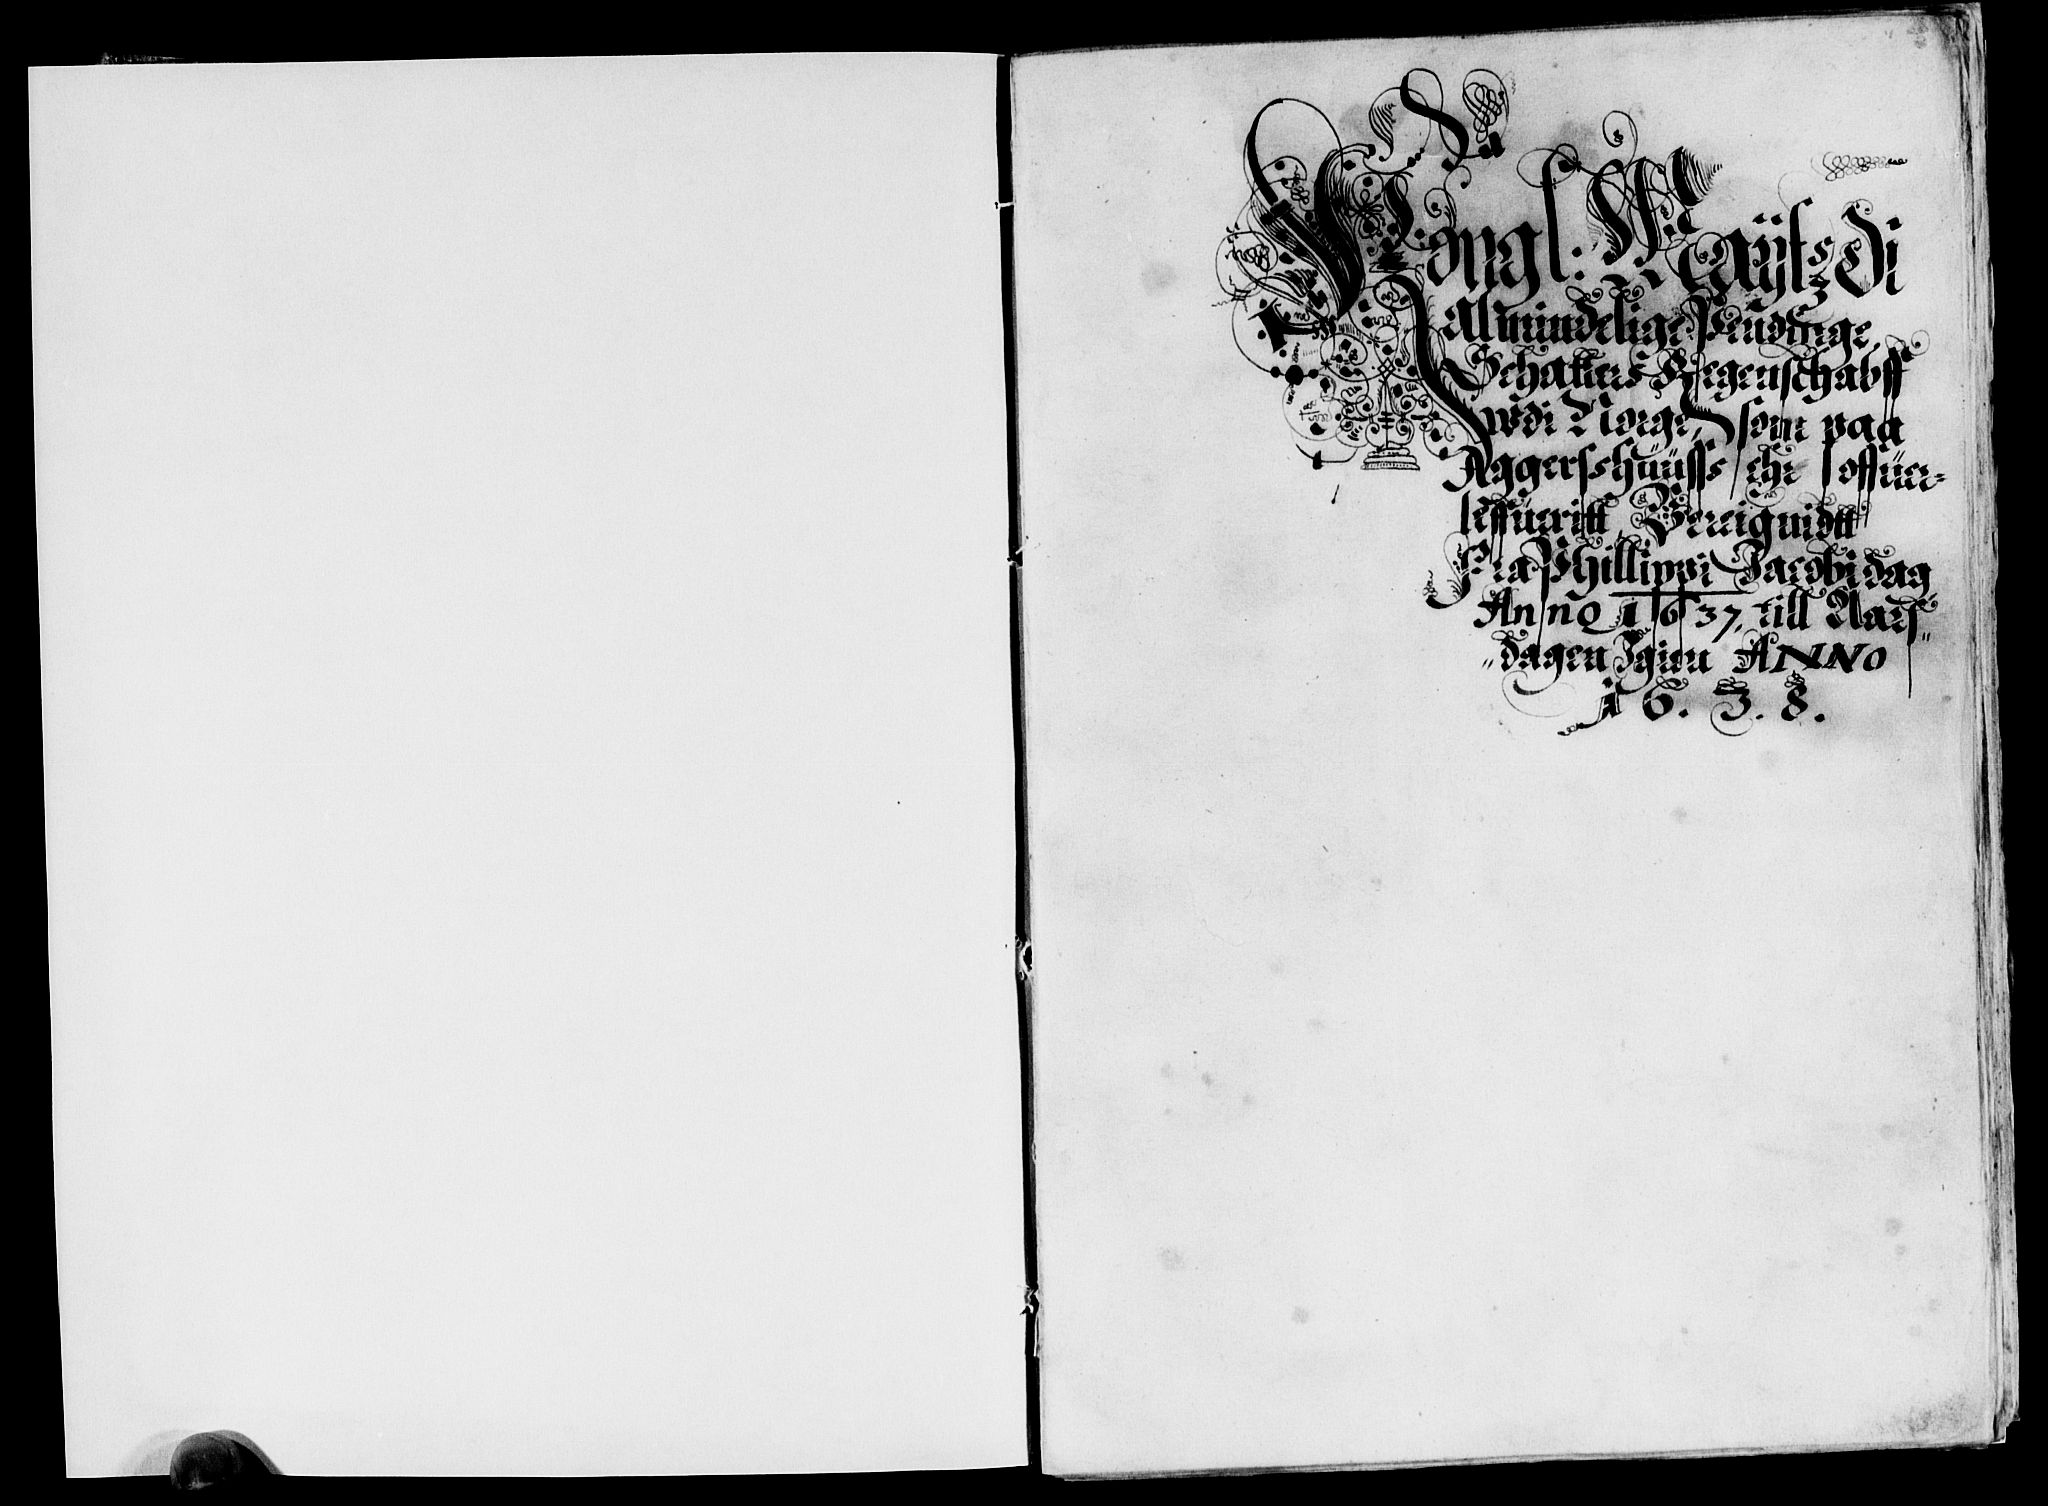 Kongl: Maÿtz Di
Almindelige Pendinge
Schatters Regenschabff
udi Norge, som paa
Aggerschuusse ehr
leffueritt, Bereignidtt
Fra Phillippi Jacobi dag
Anno 1637, till Aars-
dagen Igien ANNO
1 6. 3. 8.